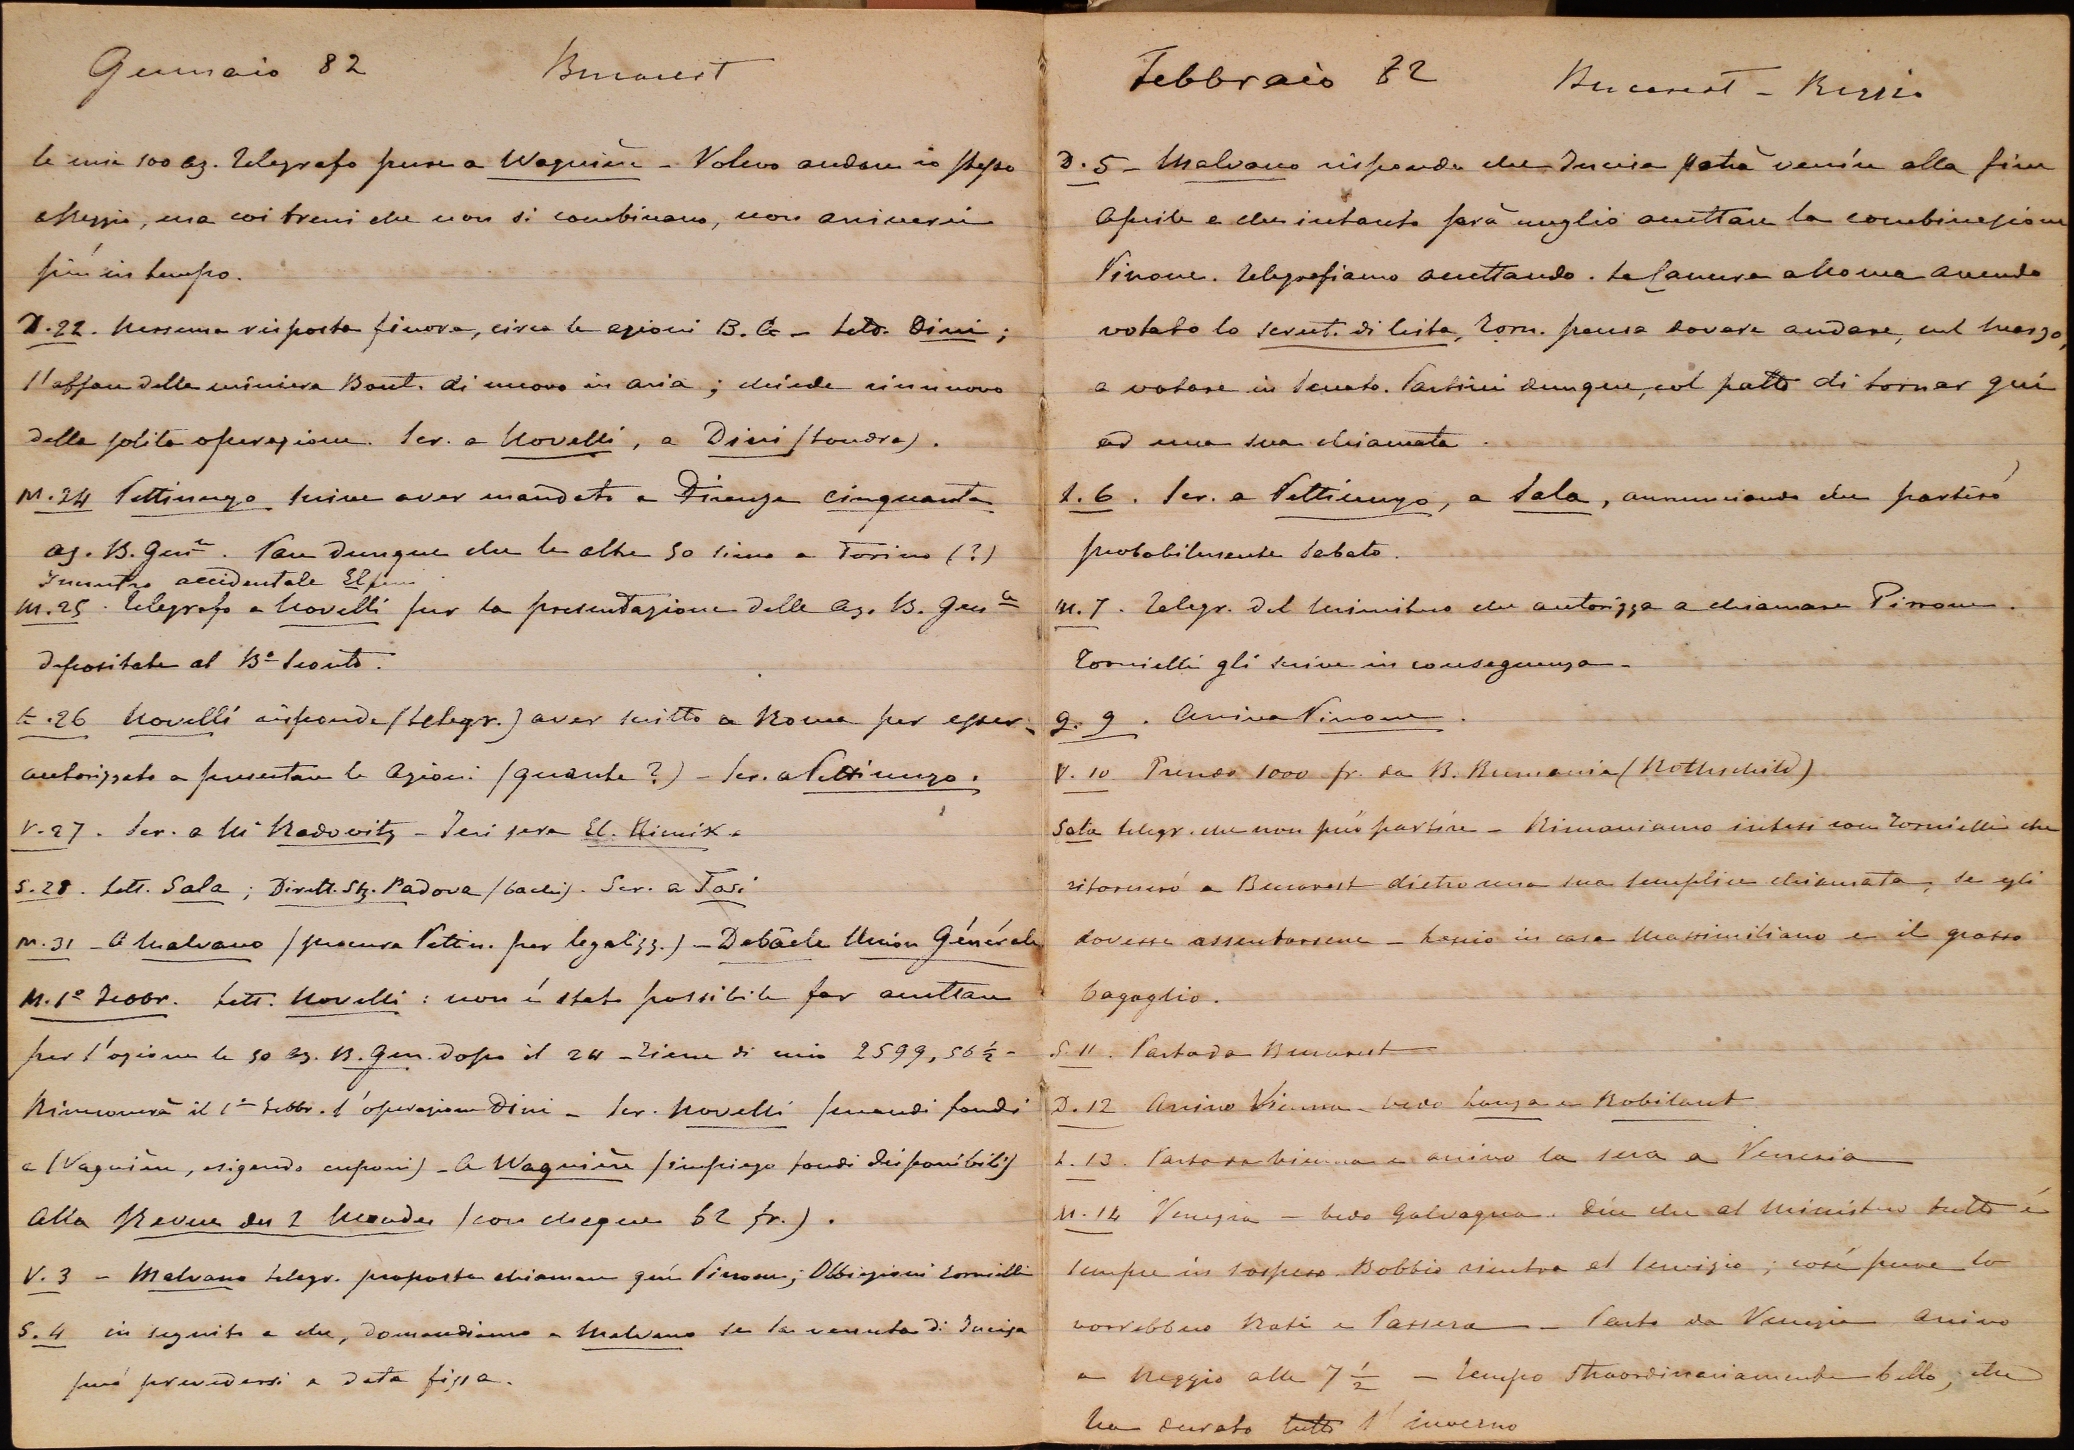 Gennaio 82 Bucarest
le mie 100 az. Telegrafo pure a Waguière - Volevo andare io stesso
a Reggio, ma coi treni che non si combinano, non arriverei
più in tempo.
D. 22. Nessuna risposta finora, circa le azioni B. G. - Lett. Dini;
l'affare della miniera Bout. di nuovo in aria; chiede rinnuovo
della solita operazione. Scr. a Novelli, a Dini (Londra).
M. 24 Pettinengo scrive aver mandato a Firenze cinquanta
az. B. Gen.le. Pare dunque che le altre 50 sieno a Torino (?)
Incontro accidentale
M. 25. Telegrafo a Novelli per la presentazione delle az. B. Gen.le
depositate al B.o Sconto.
G. 26 Novelli risponde (telegr.) aver scritto a Roma per esser
autorizzato a presentare le azioni (quante?) - Scr. a Pettinengo.
V. 27. Scr. a Mr Radowitz - Ieri sera El.
S. 28. Lett. Sala; Dirett. Stz. Padova (bachi). Scr. a Tosi
M. 31 - A Malvano (procura Pettin. per legalizz.) - Debâcle Union Générale
M. 1º Febbr. Lett. Novelli: non è stato possibile far accettare
per l'ozione le 50 az. B. Gen. dopo il 24 - Tiene di mio 2599,56 1/2 -
Rinnoverà il 1º Febbr. l'operazione Dini - Scr. Novelli (mandi fondi
a Waguière, esigendo cuponi) - A Waguière (impiego fondi disponibili)
Alla Revue des 2 Mondes (con cheque 62 fr.).
V. 3 - Malvano telegr. proposta chiamare quì Pirrone; Obbiezioni Tornielli
S. 4 in seguito a che, domandiamo a Malvano se la venuta di Incisa
può prevedersi a data fissa.
Febbraio 82 Bucarest - Reggio
D. 5 - Malvano risponde che Incisa potrà venire alla fine
Aprile e che intanto sarà meglio accettare la combinazione
Pirrone. Telegrafiamo accettando. La Camera a Roma avendo
votato lo scrut. di lista, Torn. pensa dovere andare, nel Marzo,
a votare in Senato. Partirei dunque, col patto di tornar quì
ad una sua chiamata.
L. 6. Scr. a Pettinengo, a Sala, annunciando che partirò
probabilmente Sabato.
M. 7. Telegr. del Ministero che autorizza a chiamare Pirrone.
Tornielli gli scrive in conseguenza -
G. 9. Arriva Pirrone.
V. 10 Prendo 1000 fr. da B. Rumania (Rothschild)
Sala telegr. che non può partire - Rimaniamo intesi con Tornielli che
ritornerò a Bucarest dietro una sua semplice chiamata, se egli
dovesse assentarsene - Lascio in casa Massimiliano e il grosso
bagaglio.
S. 11. Parto da Bucarest
D. 12 Arrivo Vienna - vedo Lanza e Robilant
L. 13. Parto da Vienna e arrivo la sera a Venezia
M. 14 Venezia - Vedo Galvagna. Dice che al Ministero tutto è
sempre in sospeso. Bobbio rientra al servizio; così pure lo
vorrebbero Rati e Passera - Parto da Venezia Arrivo
a Reggio alle 7 1/2 - Tempo straordinariamente bello, che
ha durato tutto l'inverno